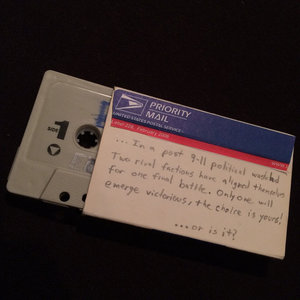 SIDE
1
PRIORITY
MAIL
UNITED STATES POSTAL SERVICE
Label 228, February 2008
www.
... In a post 9-11 political washbed
Two rival factions have aligned themselves
for one final battle. Only one will
emerge victorious, the choice is yours!
... or is it?